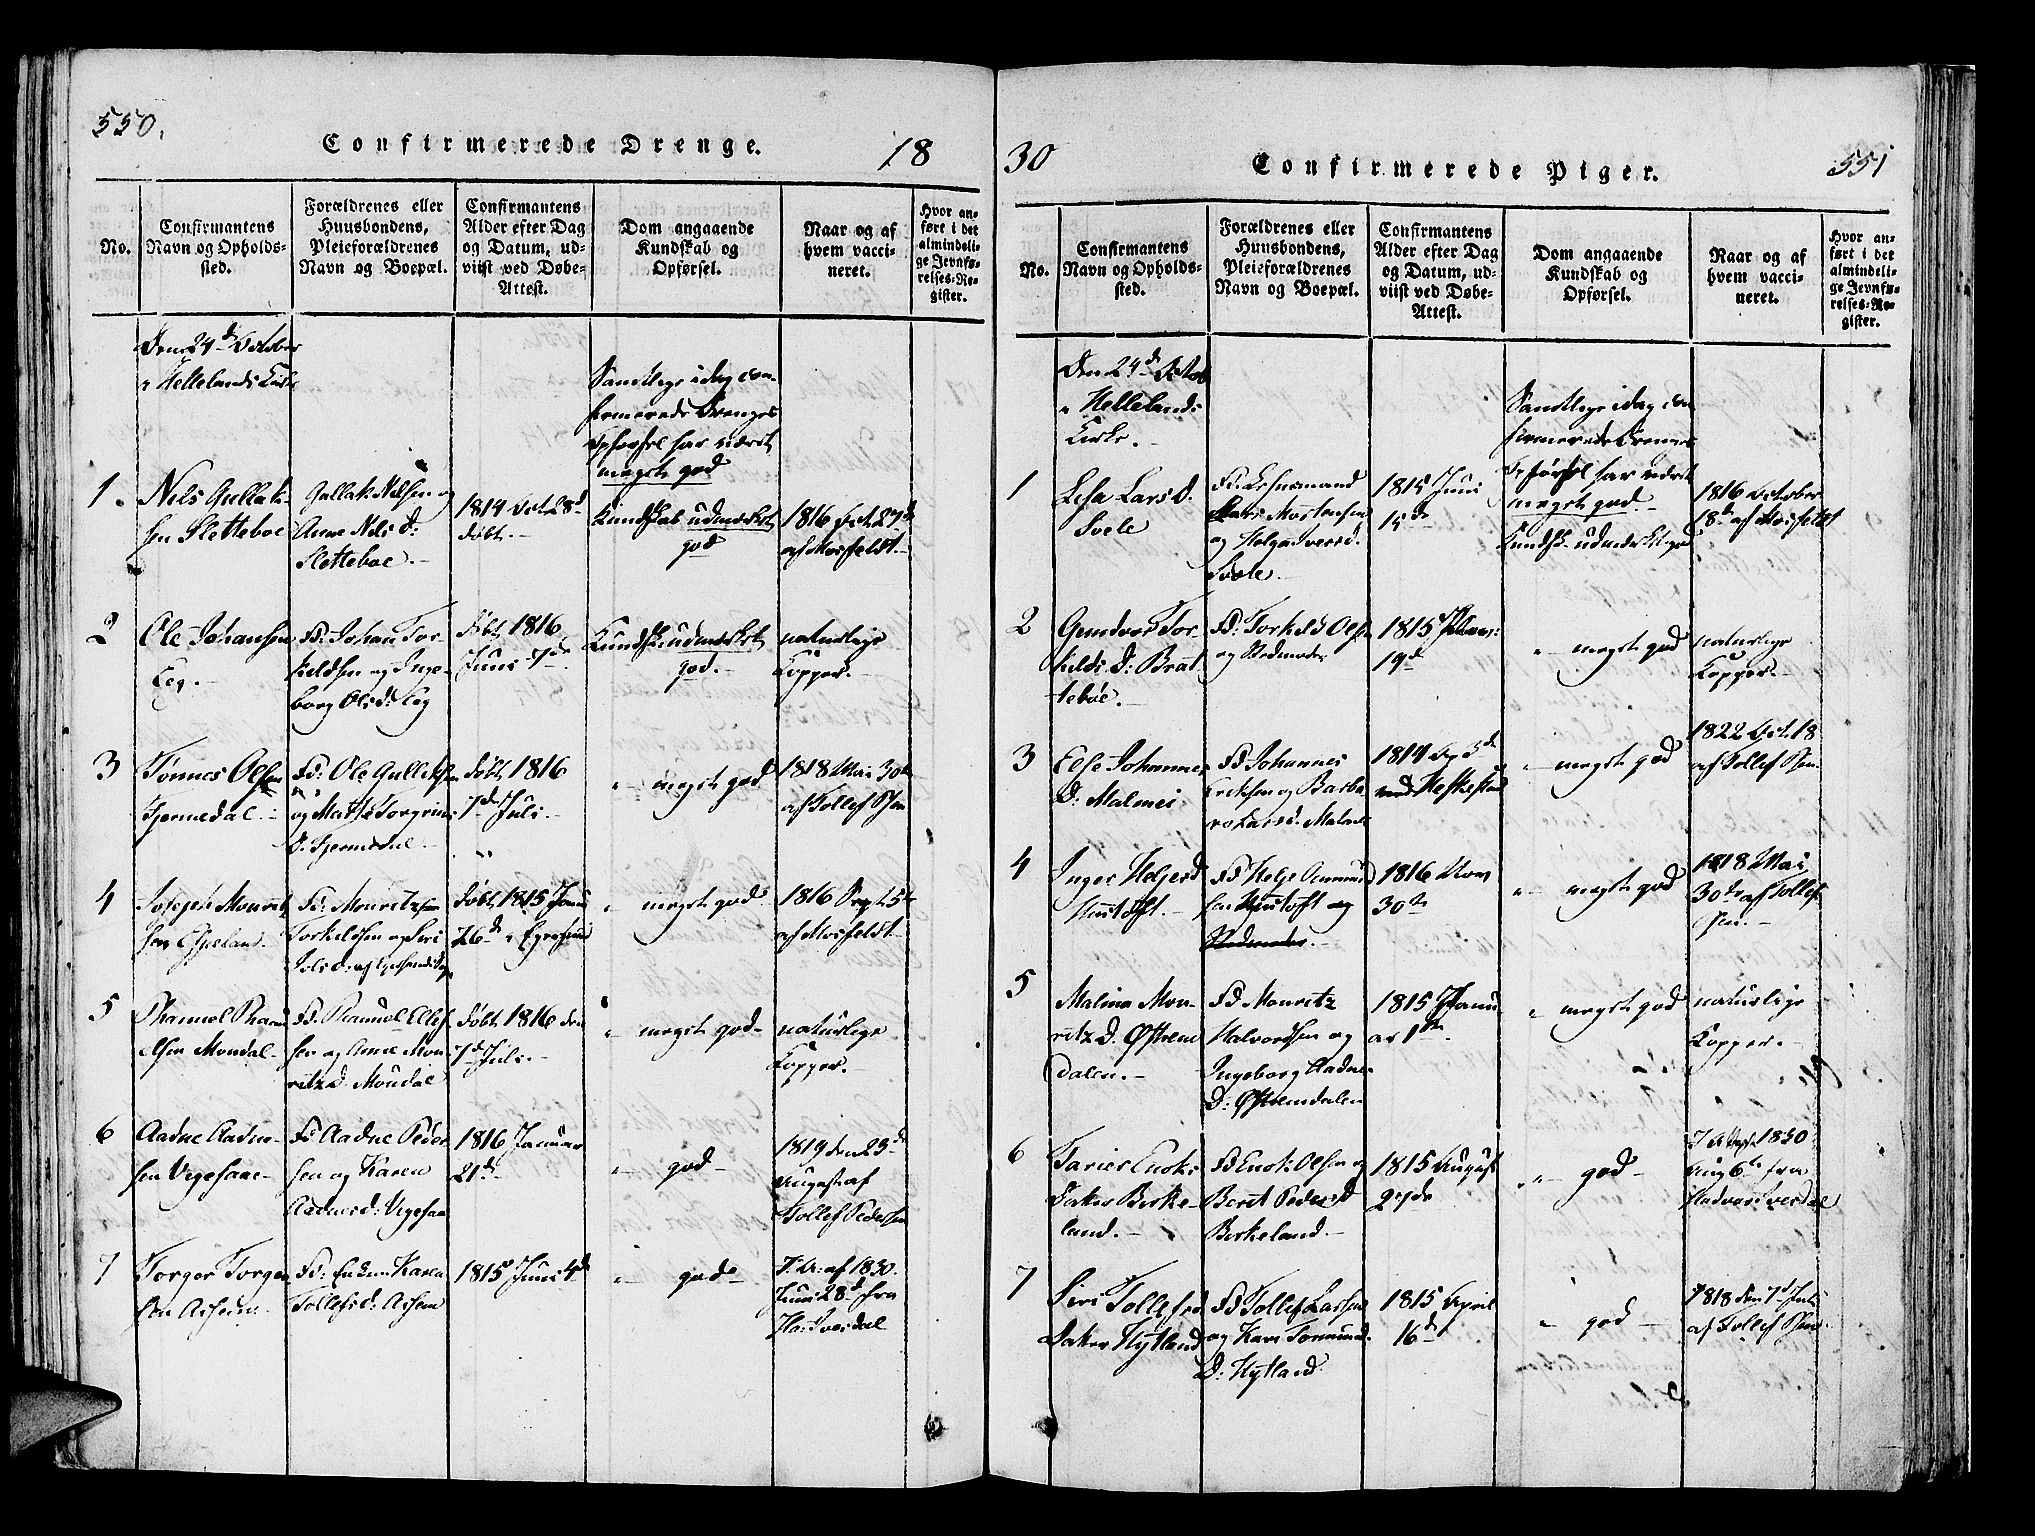 550.
Confirmerede Drenge.
18
No.
Confirmantens
Navn og Opholds-
sted.
Forældrenes eller
Huusbondens,
Pleieforældrenes
Navn og Boepæl.
Confirmantens
Alder efter Dag
og Datum, ud-
viist ved Døbe-
Attest.
Dom angaaende
Kundskab og
Opførsel.
Naar og af
hvem vacci-
neret.
Hvor an-
ført i det
almindeli-
ge Jevnfø-
relses-Re-
gister.
Den 24d October
i Hellelands Kirke
Samtlige i dag con-
firmerede Drenges
Opførsel har været
meget god
1.
Nils Gullak-
sen Sletteboe
Gullak Nilsen og
Anne Nils D:
Sletteboe.
1814 Oct 28d
døbt.
Kundskab udmærket
god
1816 Oct 27d
af Mosfeldt
2
Ole Johansen
Leg.
Fd: Johan Tor-
keldsen og Inge-
borg Olsd: Leg
døbt 1816
Juni 7d
Kundsk. udmærket
god.
naturlige
Kopper.
3
Tønnes Olsen
Tjermedal.
Fd: Ole Gulleksen
og Marthe Torgrims
D. Tjermedal.
døbt 1816
7d Juli.
" meget god
1818 Mai 30te
af Tollef Psen
4
Joseph Mourit
sen Espeland.
Fd. Mouritz
Torkeldsen og Siri
døbt 1815 Juni
26d i Egersund
" meget god
1816 Sept 5te
af Mosfeldt
5
Mondal
Fd. Ellef
sen og Anne Mou
ritz D. Moudal
døbt 1816 den
7d Juli.
" meget god
naturlige
Kopper.
6
Aadne Aadne-
sen Vegesaae
Fd Aadne Peder
sen og Karen
Aadnesd: Vegesaa
1816 Januar
21d
" god
1819 den 23d
August af
Tollef Pedersen
7
Torger Torger
sen Aarsem.
Fd: Enkem Karen
Tollefsd: Aarsem
1815 Juni 4d
" god
J. A: af 1830.
Juni 28d fra
Ha: Iversdal
30
Confirmerede Piger.
551
No.
Confirmantens
Navn og Opholds-
sted.
Forældrenes eller
Huusbondens,
Pleieforældrenes
Navn og Boepæl.
Confirmantens
Alder efter Dag
og Datum, ud-
viist ved Døbe-
Attest.
Dom angaaende
Kundskab og
Opførsel.
Naar og af
hvem vacci-
neret.
Hvor an-
ført i det
almindeli-
ge Jevnfø-
relses-Re-
gister.
Den 24d Octob
i Hellelands
Kirke.
Samtlige i dag con
firmerede
Opførsel har været
meget god.
1
Lisa Lars D.
Svele
Fd. Lehnsmand
Lars Mortensen
og Helga Iversd.
Svele.
1815 Juni
15de
Kundsk. udmærket god
1816 October
18d af Mosfeldt
2
Gundvor Tor-
kilds D: Brat
tebøe.
Fd: Torkeld Olsen
og Stedmoder
1815 Janu:
19d
" meget god
naturlige
Kopper.
3
Else Johannes
D: Malmei
Fd Johannes
Eriksen og Barbe
ro Larsd. Malmei
1814 Sep 3d
Heskestad
" meget god
1822 Oct. 18
af Tollef Psen
4
Inger Heljesd
Hustoft.
Fd Helje Osmund
sen Hustoft og
Stedmoder.
1816 Mars
30te
" meget god
1818 Mai
30te af Tollef
Psen.
5
Malina Mou-
ritz D. Østrem
dalen.
Fd Mouritz
Halvordsen og
Ingeborg Aadne
D: Østremdalen
1815 Janu
ar 1te
" meget god
naturlige
Kopper.
6
Tarier Enoks
Datter Birke-
land.
Fd Enok Olsen og
Berit Pedersd
Birkeland.
1815 August
27de
" god
J. A 1830
Aug 6te fra
Hadvor Iversdal
7
Siri Tollefsd
Datter Hytland
Fd Tollef Larsen
og Karn Tormund
D: Hytland.
1815 April
16d
" god
1818 den 7d Juli
af Tollef Psen.